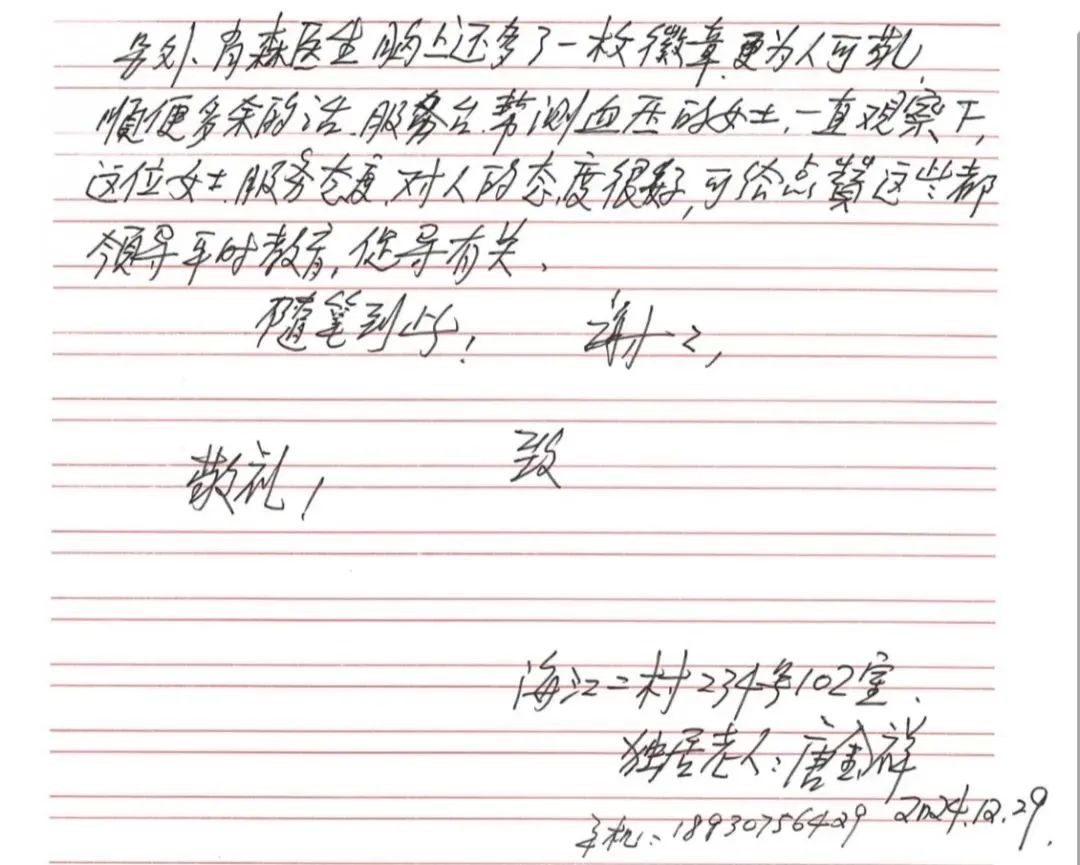 另外、肖森医生胸上还多了一枚徽章,更为人可敬,
顺便多余的话、服务台、帮测血压的女士,一直观察下,
这位女士、服务态度、对人的态度很好,可给点赞这些都
领导平时教育,促导有关、
随笔到此! 谢谢,
致
敬礼!
海江二村234号102室、
独居老人:唐金祥
手机:18930756429 2024.12.29.